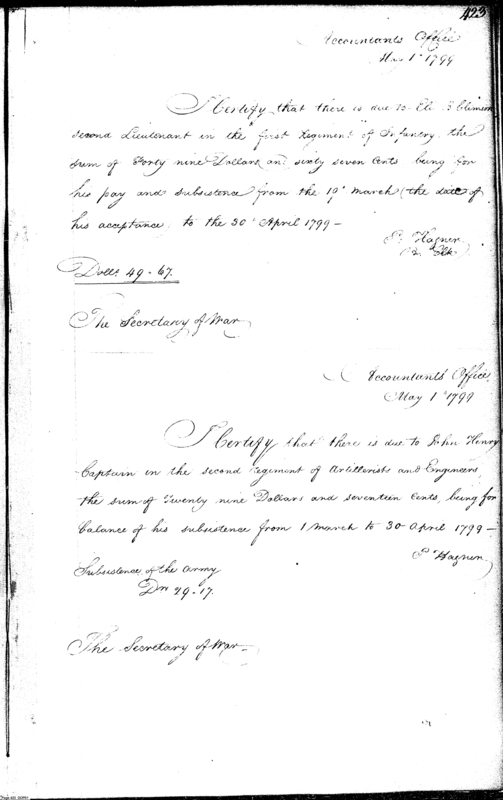 423
Accountants Office
May 1st 1799
I Certify that there is due to Eli B Climson
second Lieutenant in the first Regiment of Infantry, the
sum of Forty nine Dollars and sixty seven Cents being for
his pay and subsistence from the 19th March (the date of
his acceptance, to the 30th April 1799 —
P. Hagner
Dolls 49.67.
The Secretary of War
Accountants Office
May 1st 1799
I Certify that there is due to John Henry
Captain in the second Regiment of Artillerists and Engineers
the sum of Twenty nine Dollars and seventeen Cents, being for
balance of his subsistence from 1 March to 30 April 1799 —
P Hagner
Subsistence of the Army
29.17.
The Secretary of War